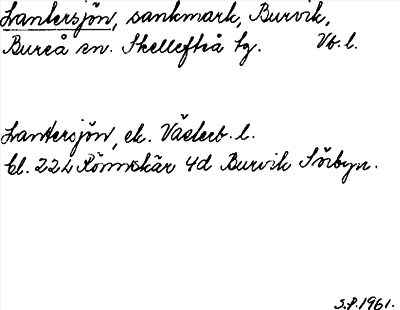 Lantersjön, sankmark, Burvik,
Bureå sn. Skellefteå tg. Vb. l.
Lantersjön, ek. Västerb. l.
bl. 22L Rönnskär 4d Burvik Sörbyn.
S.P. 1961.